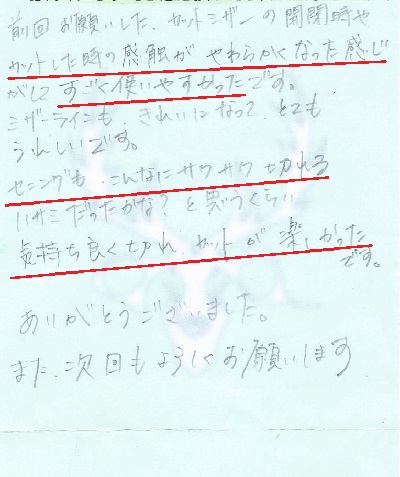 前回お願いした、カットシザーの開閉時や
カットした時の感触が やわらかくなった感じ
がして すごく使いやすかったです。
シザーラインも、きれいになって、とても
うれしいです。
セニングも、こんなにサクサク切れる
ハサミだったかな？と思うくらい
気持ち良く切れ、カットが楽しかった
です。
ありがとうございました。
また、次回もよろしくお願いします